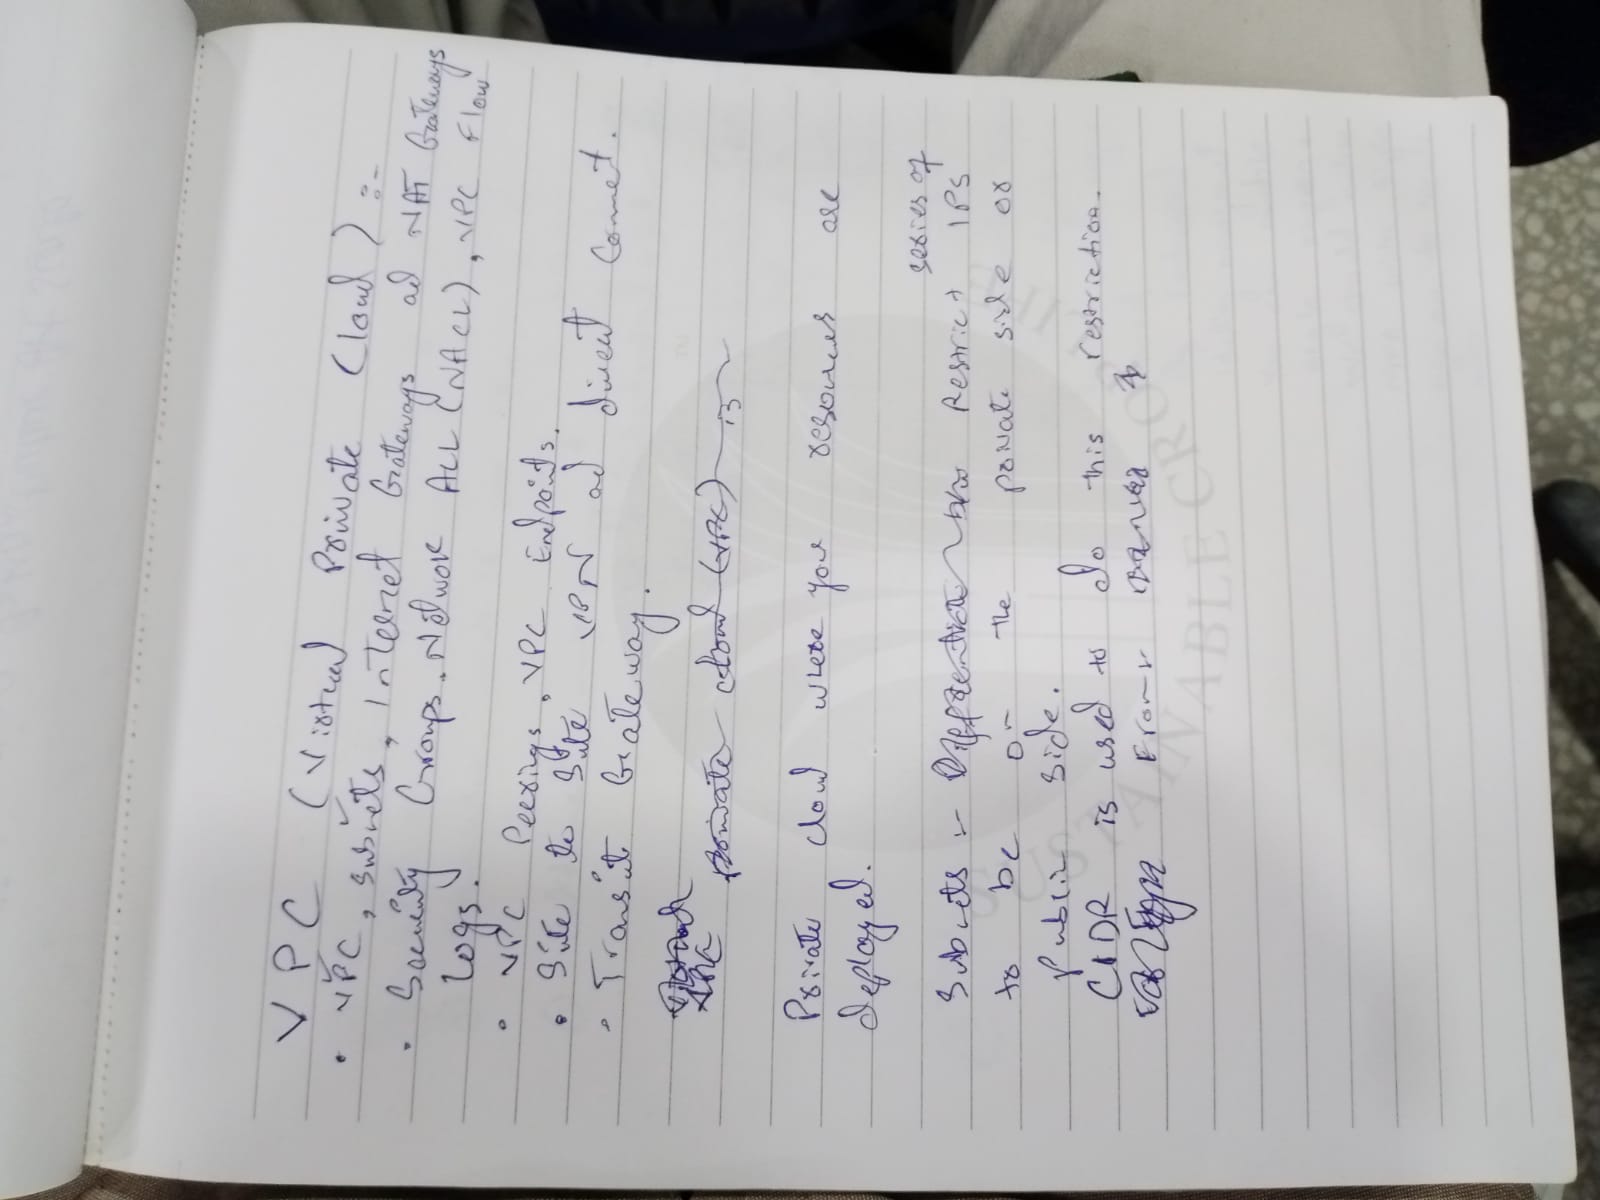 VPC (Virtual Private Cloud) :-
• VPC, subnets, Internet Gateways ad NAT Gateways
• Security Groups. Network ALL (NACL), VPC Flow
Logs.
• VPC Peering, VPC Endpoints.
• Site to Site VPN ad direct Connect.
• Transit Gateway.
VPC private cloud (VPC) is
Private cloud where your resources are
deployed.
series of
Subnets :- Restrict IPS
to be on the private side or
Public side.
CIDR is used to do this restriction.
From
SUSTAINABLE GRO